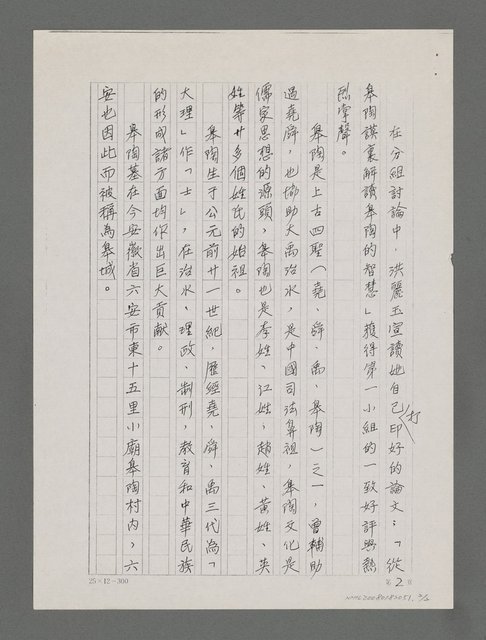 在分組討論中，洪麗玉宣讀她自己打印好的論文：「從
皋陶謨裏解讀皋陶的智慧」獲得第一小組的一致好評與熱
烈掌聲。
皋陶是上古四聖（堯、舜、禹、皋陶）之一，曾輔助
過堯舜，也協助大禹治水，是中國司法鼻祖，皋陶文化是
儒家思想的源頭，皋陶也是李姓、江姓、趙姓、黃姓、英
姓等廿多個姓氏的始祖。
皋陶生于公元前廿一世紀，歷經堯、舜、禹三代為「
大理」作「士」，在治水、理政、制刑，教育和中華民族
的形成諸方面均作出巨大貢獻。
皋陶墓在今安徽省六安市東十五里小廟皋陶村內，六
安也因此而被稱為皋城。
25×12=300
第2頁